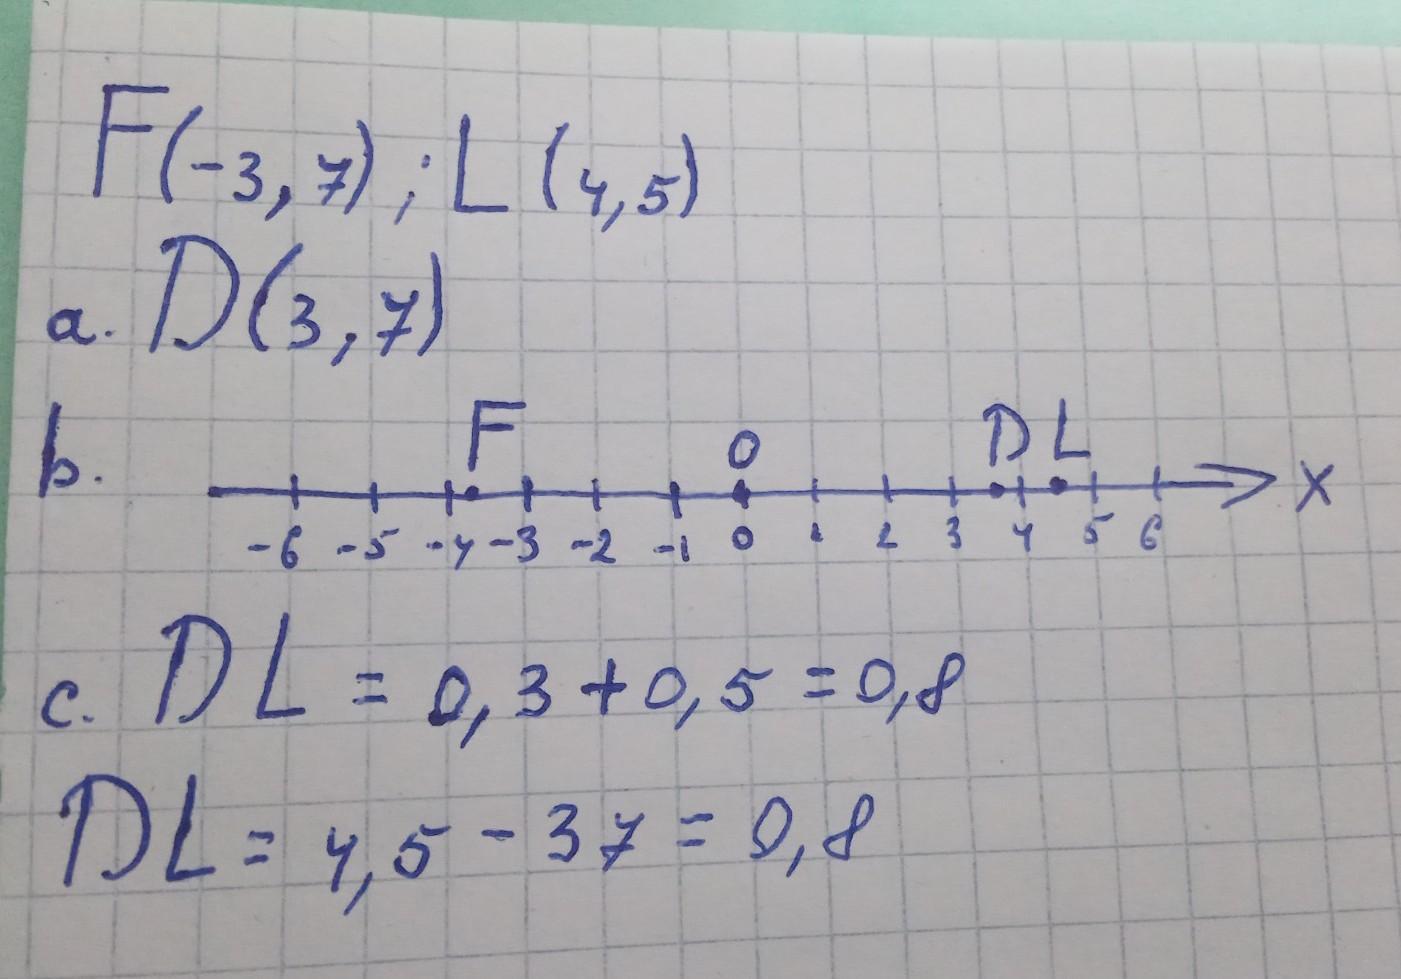 F(-3,7); L(4,5)
a. D(3,7)
b. F O D L X
-6 -5 -4 -3 -2 -1 0 1 2 3 4 5 6
c. DL = 0,3+0,5=0,8
DL= 4,5-37=0,8